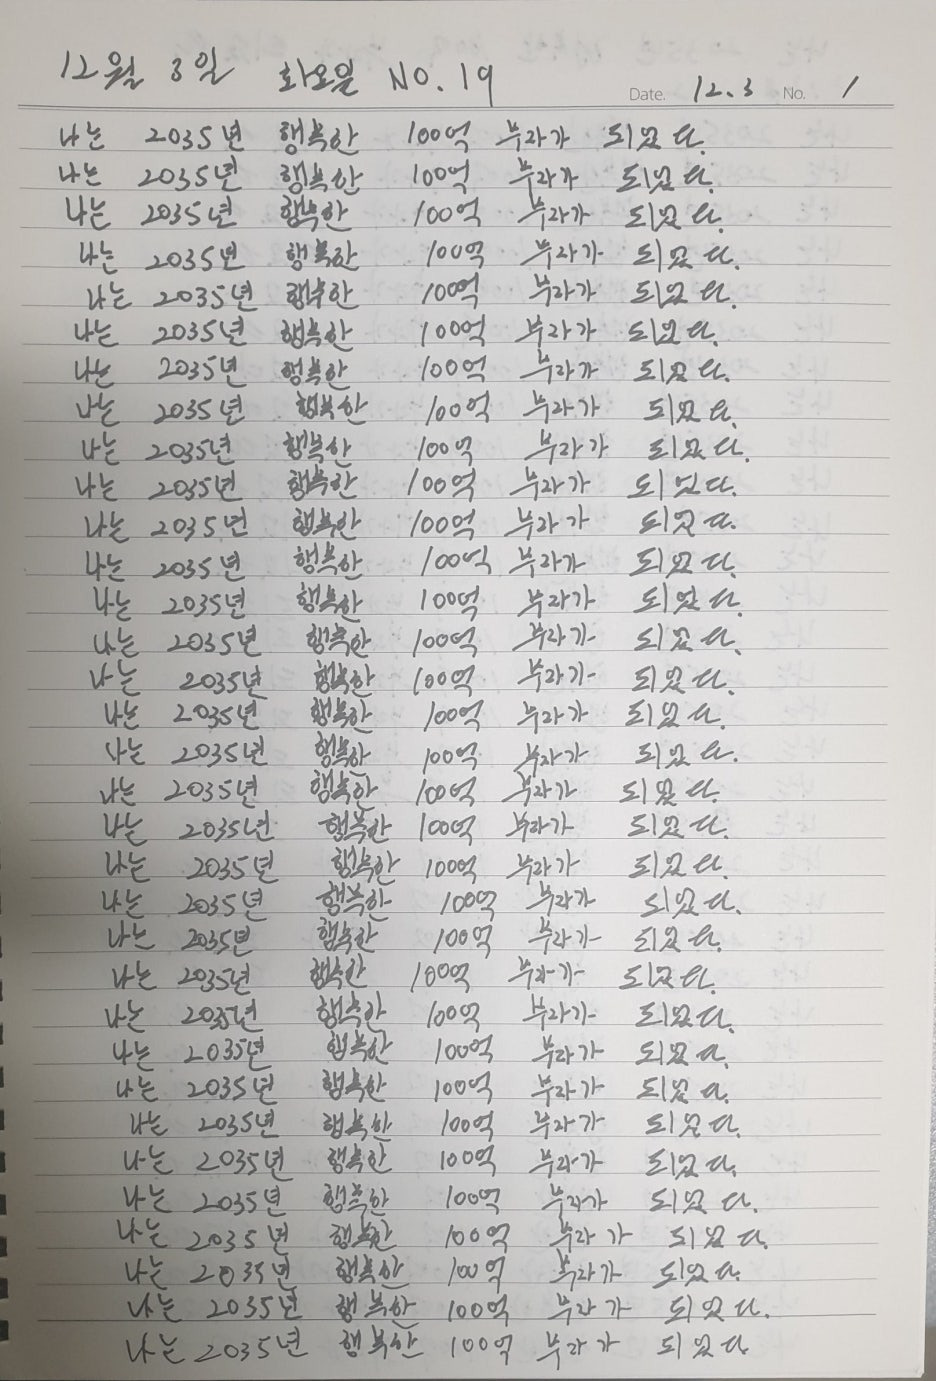 12월 3일 화요일 NO.19
Date. 12.3 No. 1
나는 2035년 행복한 100억 부자가 되었다.
나는 2035년 행복한 100억 부자가 되었다.
나는 2035년 행복한 100억 부자가 되었다.
나는 2035년 행복한 100억 부자가 되었다.
나는 2035년 행복한 100억 부자가 되었다.
나는 2035년 행복한 100억 부자가 되었다.
나는 2035년 행복한 100억 부자가 되었다.
나는 2035년 행복한 100억 부자가 되었다.
나는 2035년 행복한 100억 부자가 되었다.
나는 2035년 행복한 100억 부자가 되었다.
나는 2035년 행복한 100억 부자가 되었다.
나는 2035년 행복한 100억 부자가 되었다.
나는 2035년 행복한 100억 부자가 되었다.
나는 2035년 행복한 100억 부자가 되었다.
나는 2035년 행복한 100억 부자가 되었다.
나는 2035년 행복한 100억 부자가 되었다.
나는 2035년 행복한 100억 부자가 되었다.
나는 2035년 행복한 100억 부자가 되었다.
나는 2035년 행복한 100억 부자가 되었다.
나는 2035년 행복한 100억 부자가 되었다.
나는 2035년 행복한 100억 부자가 되었다.
나는 2035년 행복한 100억 부자가 되었다.
나는 2035년 행복한 100억 부자가 되었다.
나는 2035년 행복한 100억 부자가 되었다.
나는 2035년 행복한 100억 부자가 되었다.
나는 2035년 행복한 100억 부자가 되었다.
나는 2035년 행복한 100억 부자가 되었다.
나는 2035년 행복한 100억 부자가 되었다.
나는 2035년 행복한 100억 부자가 되었다.
나는 2035년 행복한 100억 부자가 되었다.
나는 2035년 행복한 100억 부자가 되었다.
나는 2035년 행복한 100억 부자가 되었다.
나는 2035년 행복한 100억 부자가 되었다